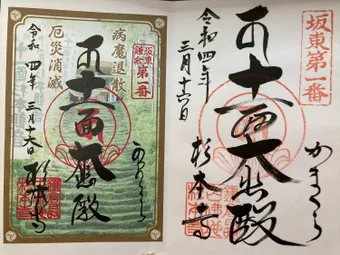 坂東
鎌倉
第一番
病魔退散
十一面大悲殿
厄災消滅
令和四年 三月十六日
かまくら
杉本寺
坂東第一番
十一面大悲殿
令和四年
三月十六日
かまくら
杉本寺